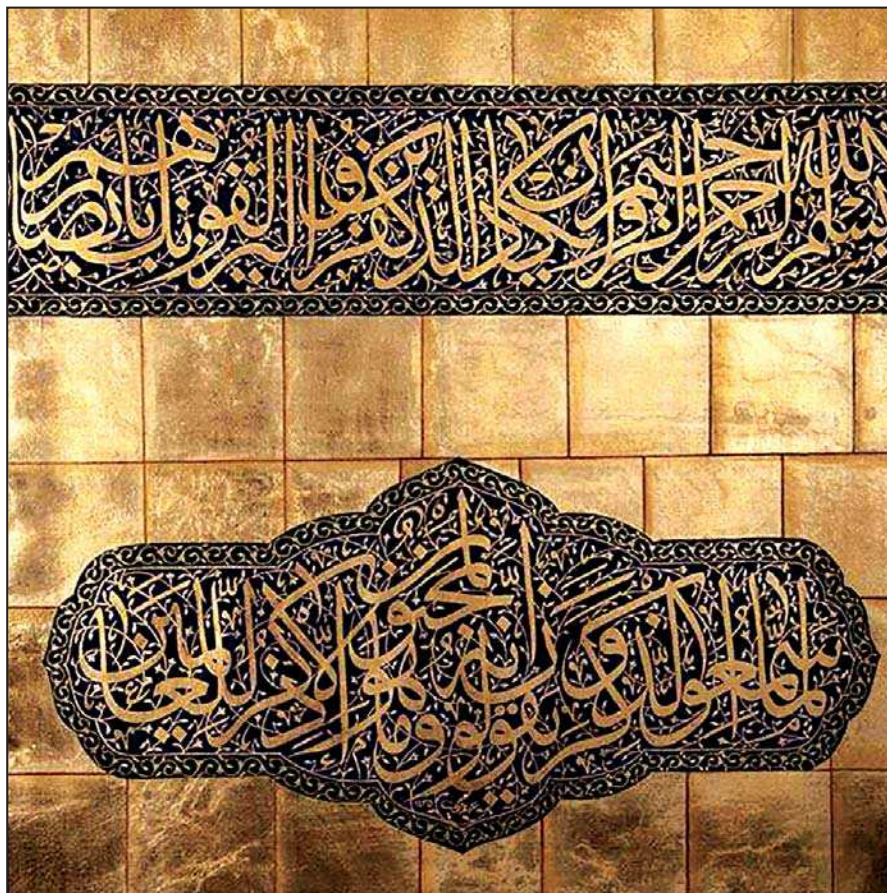 بسم الله الرحمن الرحيم وإن يكاد الذين كفروا ليزلقونك بأبصارهم
لما سمعوا الذكر ويقولون إنه لمجنون وما هو إلا ذكر للعالمين